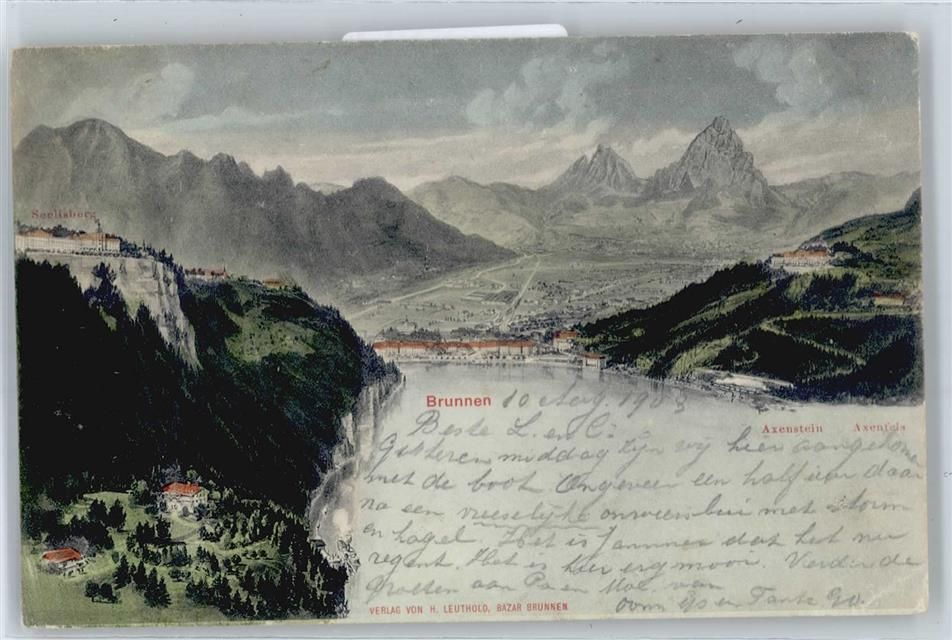 Seelisberg
Brunnen 10 Aug. 1903
Axenstein Axenfels
Beste L. en C.
Gisteren middag zijn wij hier aangekomen
met de boot. Ongeveer een half uur daar
na een vreeselijke onweersbui met storm
en hagel. Het is jammer dat het nu
regent. Het is hier erg mooi. Verder de
groeten aan Pa en Moe. van
oom en Tante
VERLAG VON H. LEUTHOLD, BAZAR BRUNNEN